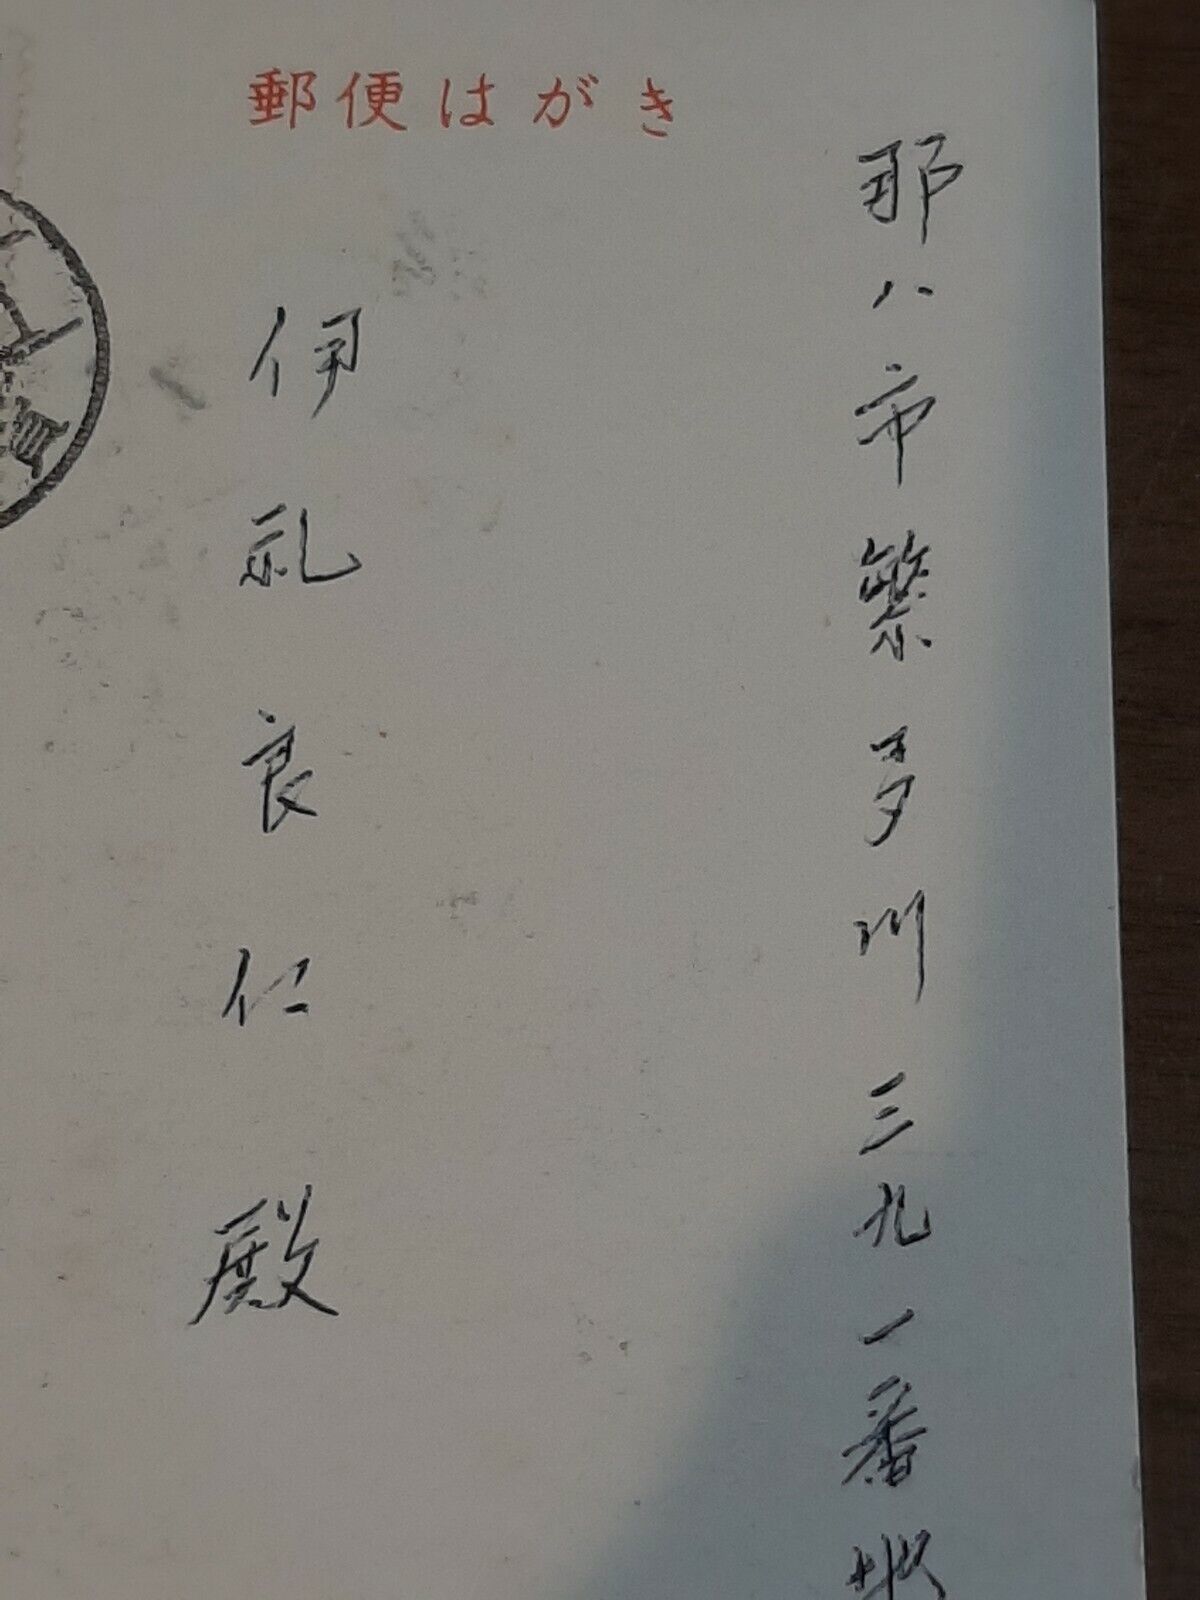 郵便はがき
那八市繁多川三九一番地
伊礼良仁殿